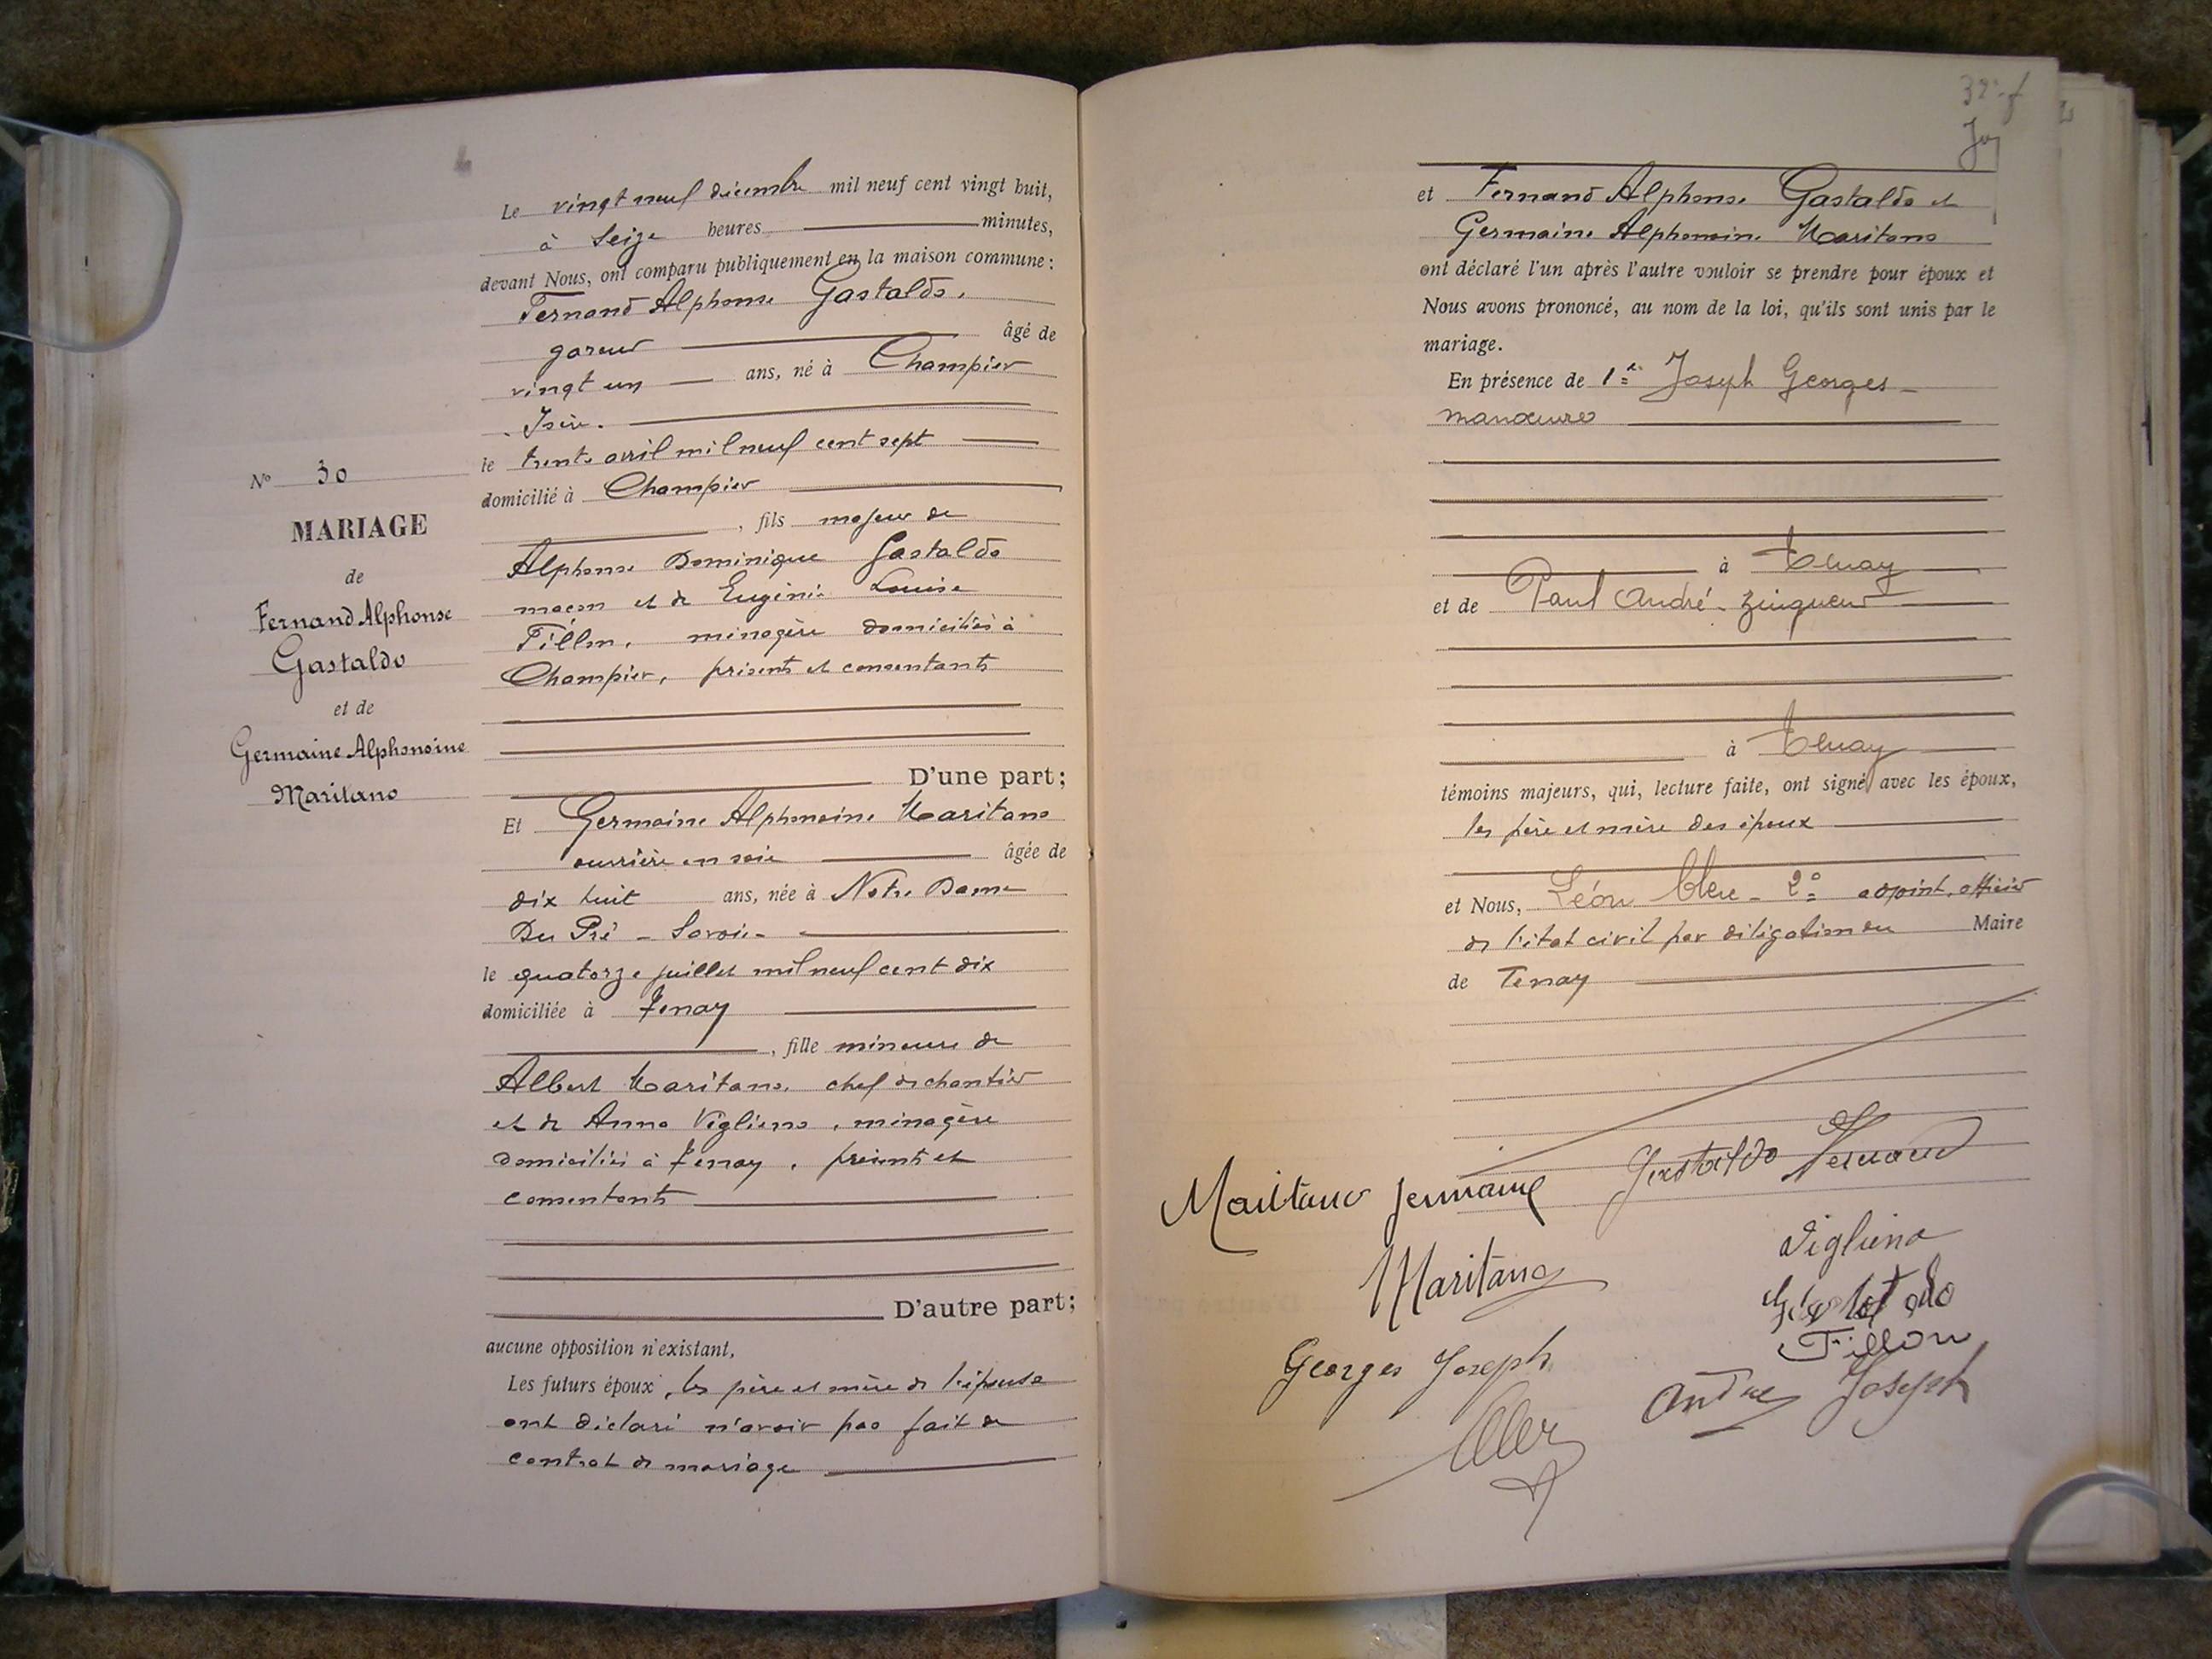 Le vingt neuf décembre mil neuf cent vingt huit,
à Seize heures minutes,
devant Nous, ont comparu publiquement en la maison commune :
Fernand Alphonse Gastaldo,
gareur âgé de
vingt un ans, né à Champier
Isère.
le trente avril mil neuf cent sept
domicilié à Champier
, fils majeur de
Alphonse Dominique Gastaldo
maçon et de Eugénie Louise
Fillon, ménagère domiciliés à
Champier, présents et consentants
D'une part;
N° 30
MARIAGE
de
Fernand Alphonse
Gastaldo
et de
Germaine Alphonsine
Maritano
Et Germaine Alphonsine Maritano
ouvrière en soie âgée de
dix huit ans, née à Notre Dame
Du Pré - Savoie -
le quatorze juillet mil neuf cent dix
domiciliée à Tenay
, fille mineure de
Albert Maritano, chef de chantier
et de Anna Vigliano, ménagère
domiciliés à Tenay, présents et
consentants
D'autre part;
aucune opposition n'existant,
Les futurs époux, les père et mère de l'épouse
ont déclaré n'avoir pas fait de
contrat de mariage
et Fernand Alphonse Gastaldo et
Germaine Alphonsine Maritano
ont déclaré l'un après l'autre vouloir se prendre pour époux et
Nous avons prononcé, au nom de la loi, qu'ils sont unis par le
mariage.
En présence de Joseph Georges -
manœuvre
à Tenay
et de Paul André - zingueur
à Tenay
témoins majeurs, qui, lecture faite, ont signé avec les époux,
les père et mère des époux
et Nous, Léon 2e adjoint, officier
de l'état civil par délégation du Maire
de Tenay
Maritano Germaine Gastaldo Fernand
Vigliano
Maritano
Gastaldo
Fillon
Georges Joseph
André Joseph